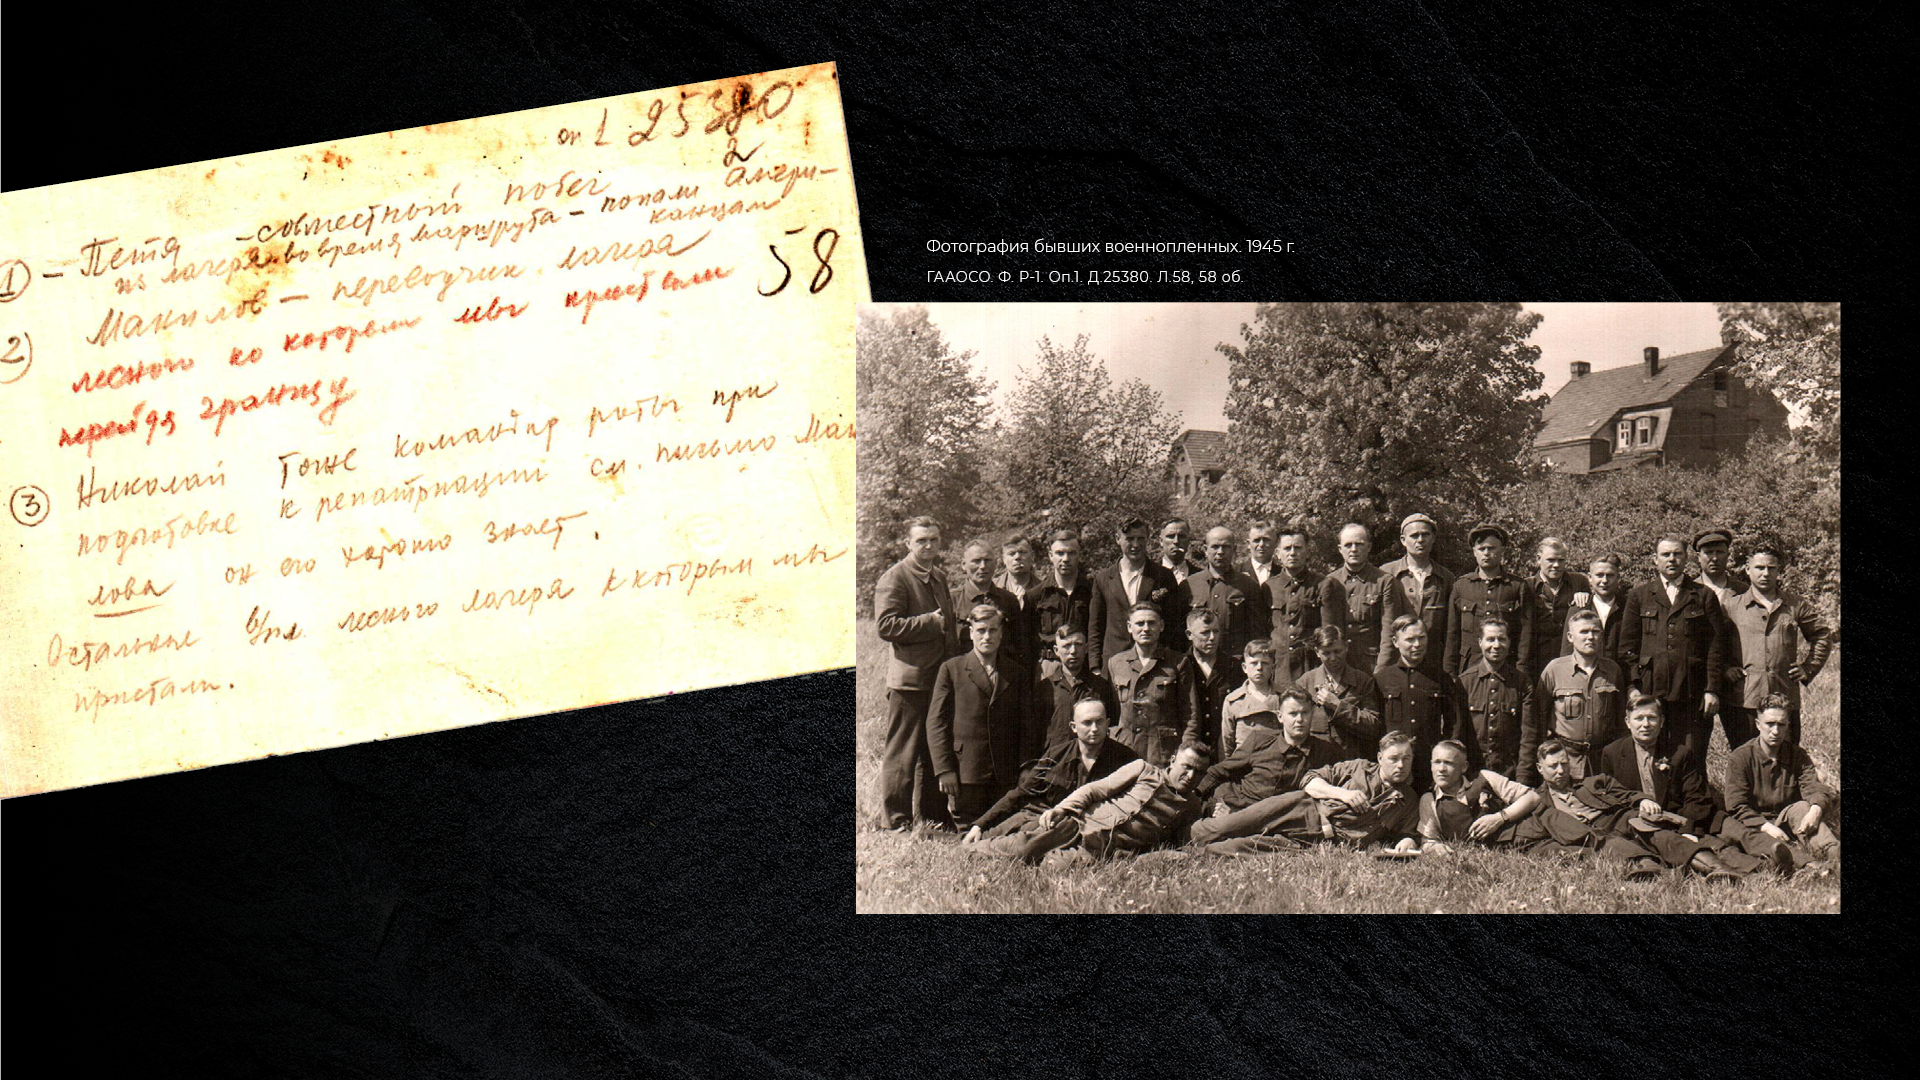 оп 1 25380
2
① – Петя – совместный побег
из лагеря во время маршрута – попали амери-
канцам
2) Манилов – переводчик лагеря
58
лесного ко которым мы пристали
перейдя границу
③ Николай Тоже командир роты при
подготовке к репатриации см. письмо Ман
лова он его хорошо знает.
Остальные лесного лагеря к которым мы
пристали.
Фотография бывших военнопленных. 1945 г.
ГААОСО. Ф. Р-1. Оп.1. Д.25380. Л.58, 58 об.